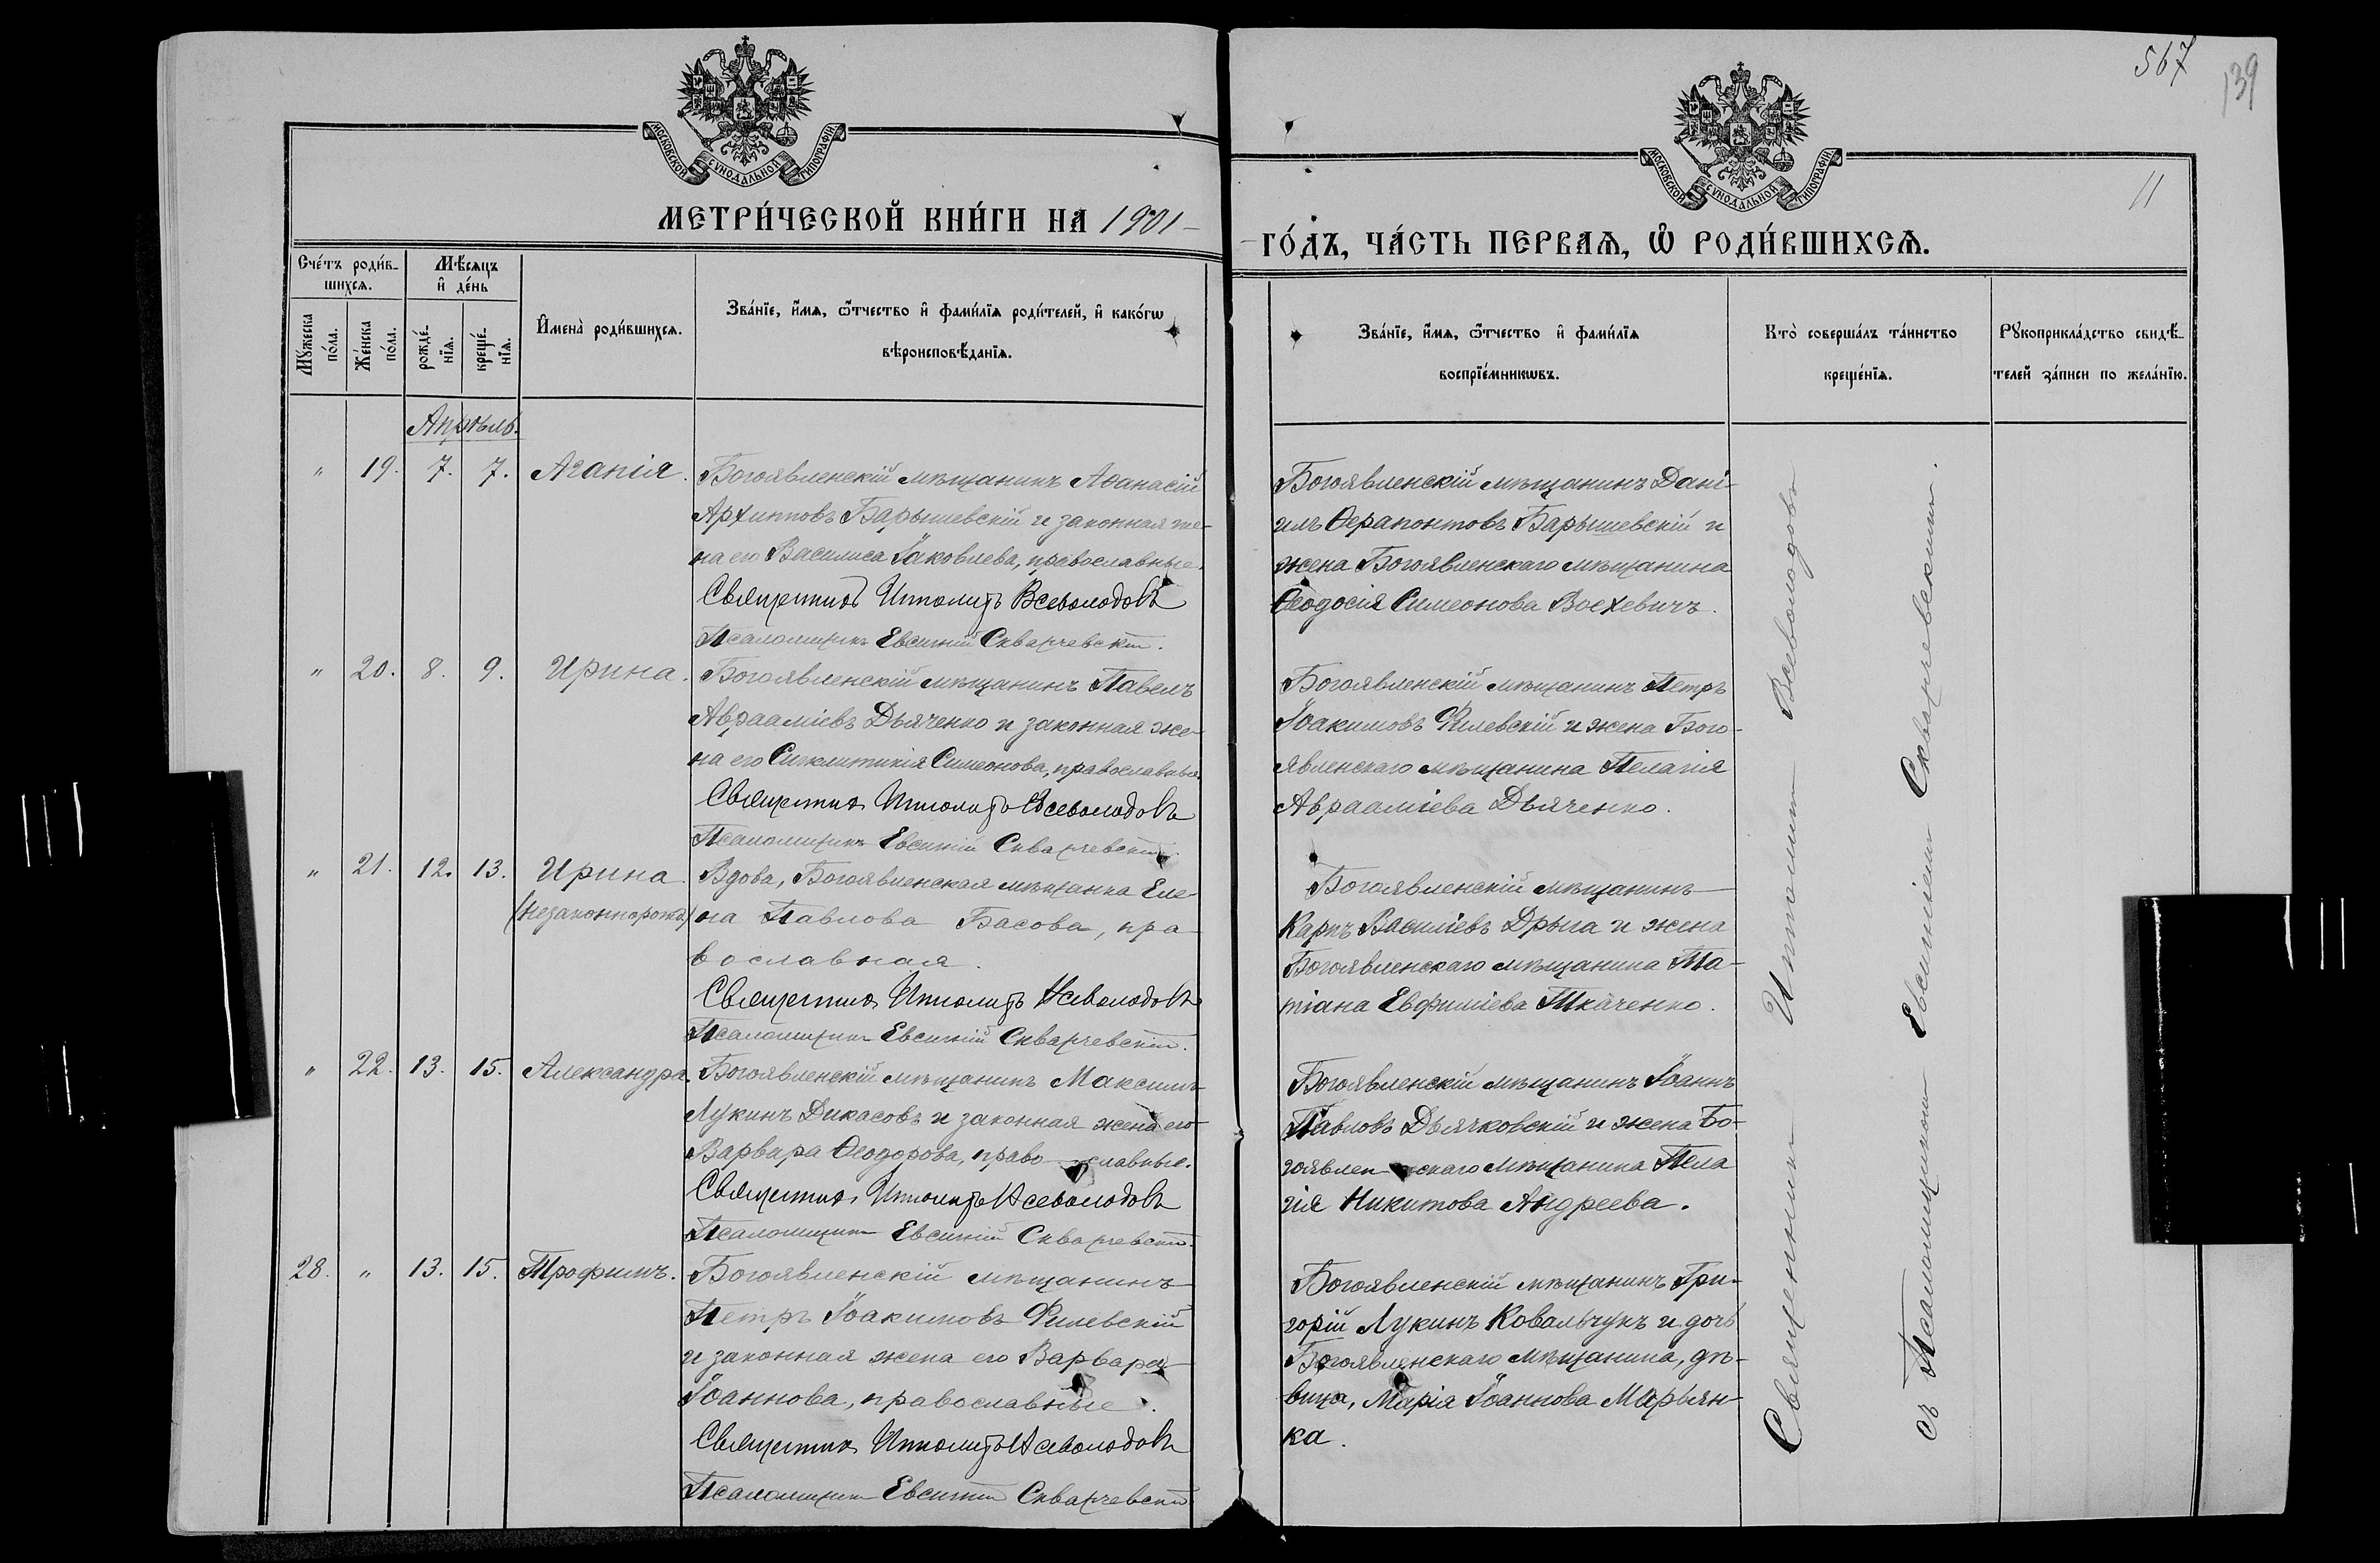 567
139
11
МОСКОВСКОЙ СѴНОДАЛЬНОЙ ТИПОГРАФІИ
МОСКОВСКОЙ СѴНОДАЛЬНОЙ ТИПОГРАФІИ
МЕТРИ́ЧЕСКОЙ КНИ́ГИ НА 1901
ГО́ДЪ, ЧА́СТЬ ПЕРВАѦ, Ѡ҆ РОДИ́ВШИХСѦ.
Сче́тъ роди́в-
шихсѧ.
Мѣсяцъ
и҆ де́нь
Мꙋ́жеска
по́ла.
Же́нска
по́ла.
рожде́-
нїѧ.
креще́-
нїѧ.
И҆мена̀ роди́вшихсѧ.
Зва́нїе, и҆́мѧ, ѻ҆́тчество и҆ фами́лїѧ роди́телей, и҆ како́гѡ
вѣроисповѣ́данїѧ.
Зва́нїе, и҆́мѧ, ѻ҆́тчество и҆ фами́лїѧ
воспрїе́мникѡвъ.
Кто̀ соверша́лъ та́инство
креще́нїѧ.
Рꙋкоприкла́дство свидѣ́-
телей за́писи по жела́нїю.
Апрѣль.
" 19. 7. 7. Агапія.
Богоявленскій мѣщанинъ Аѳанасій
Архипповъ Барышевскій и законная же-
на его Василиса Іаковлева, православные.
Священникъ Ипполитъ Всеволодовъ
Псаломщикъ Евсигній Скварчевскій.
Богоявленскій мѣщанинъ Дані-
илъ Ѳерапонтовъ Барышевскій и
жена Богоявленскаго мѣщанина
Ѳеодосія Симеонова Воехевичъ.
" 20. 8. 9. Ирина.
Богоявленскій мѣщанинъ Павелъ
Авраамiевъ Дьяченко и законная же-
на его Синклитикія Симеонова, православные.
Священникъ Ипполитъ Всеволодовъ
Псаломщикъ Евсигній Скварчевскій.
Богоявленскій мѣщанинъ Петръ
Іоакимовъ Филевскій и жена Бого-
явленскаго мѣщанина Пелагія
Авраамiева Дьяченко.
" 21. 12. 13. Ирина.
(незаконнорожд.)
Вдова, Богоявленская мѣщанка Еле-
на Павлова Басова, пра-
вославная.
Священникъ Ипполитъ Всеволодовъ
Псаломщикъ Евсигній Скварчевскій.
Богоявленскій мѣщанинъ
Карпъ Василіевъ Дрыга и жена
Богоявленскаго мѣщанина Та-
тіана Евфиміева Ткаченко.
" 22. 13. 15. Александра.
Богоявленскій мѣщанинъ Максимъ
Лукинъ Дикасовъ и законная жена его
Варвара Ѳеодорова, православные.
Священникъ Ипполитъ Всеволодовъ
Псаломщикъ Евсигній Скварчевскій.
Богоявленскій мѣщанинъ Іоаннъ
Павловъ Дьячковскій и жена Бо-
гоявленскаго мѣщанина Пела
гія Никитова Андреева.
28. " 13. 15. Трофимъ.
Богоявленскій мѣщанинъ
Петръ Іоакимовъ Филевскій
и законная жена его Варвара
Іоаннова, православные.
Священникъ Ипполитъ Всеволодовъ
Псаломщикъ Евсигній Скварчевскій
Богоявленскій мѣщанинъ Гри-
горій Лукинъ Ковальчукъ и дочь
Богоявленскаго мѣщанина, дѣ-
вица, Марія Іоаннова Марьян-
ка.
Священникъ Ипполитъ Всеволодовъ
съ Псаломщикомъ Евсигніемъ Скварчевскимъ.